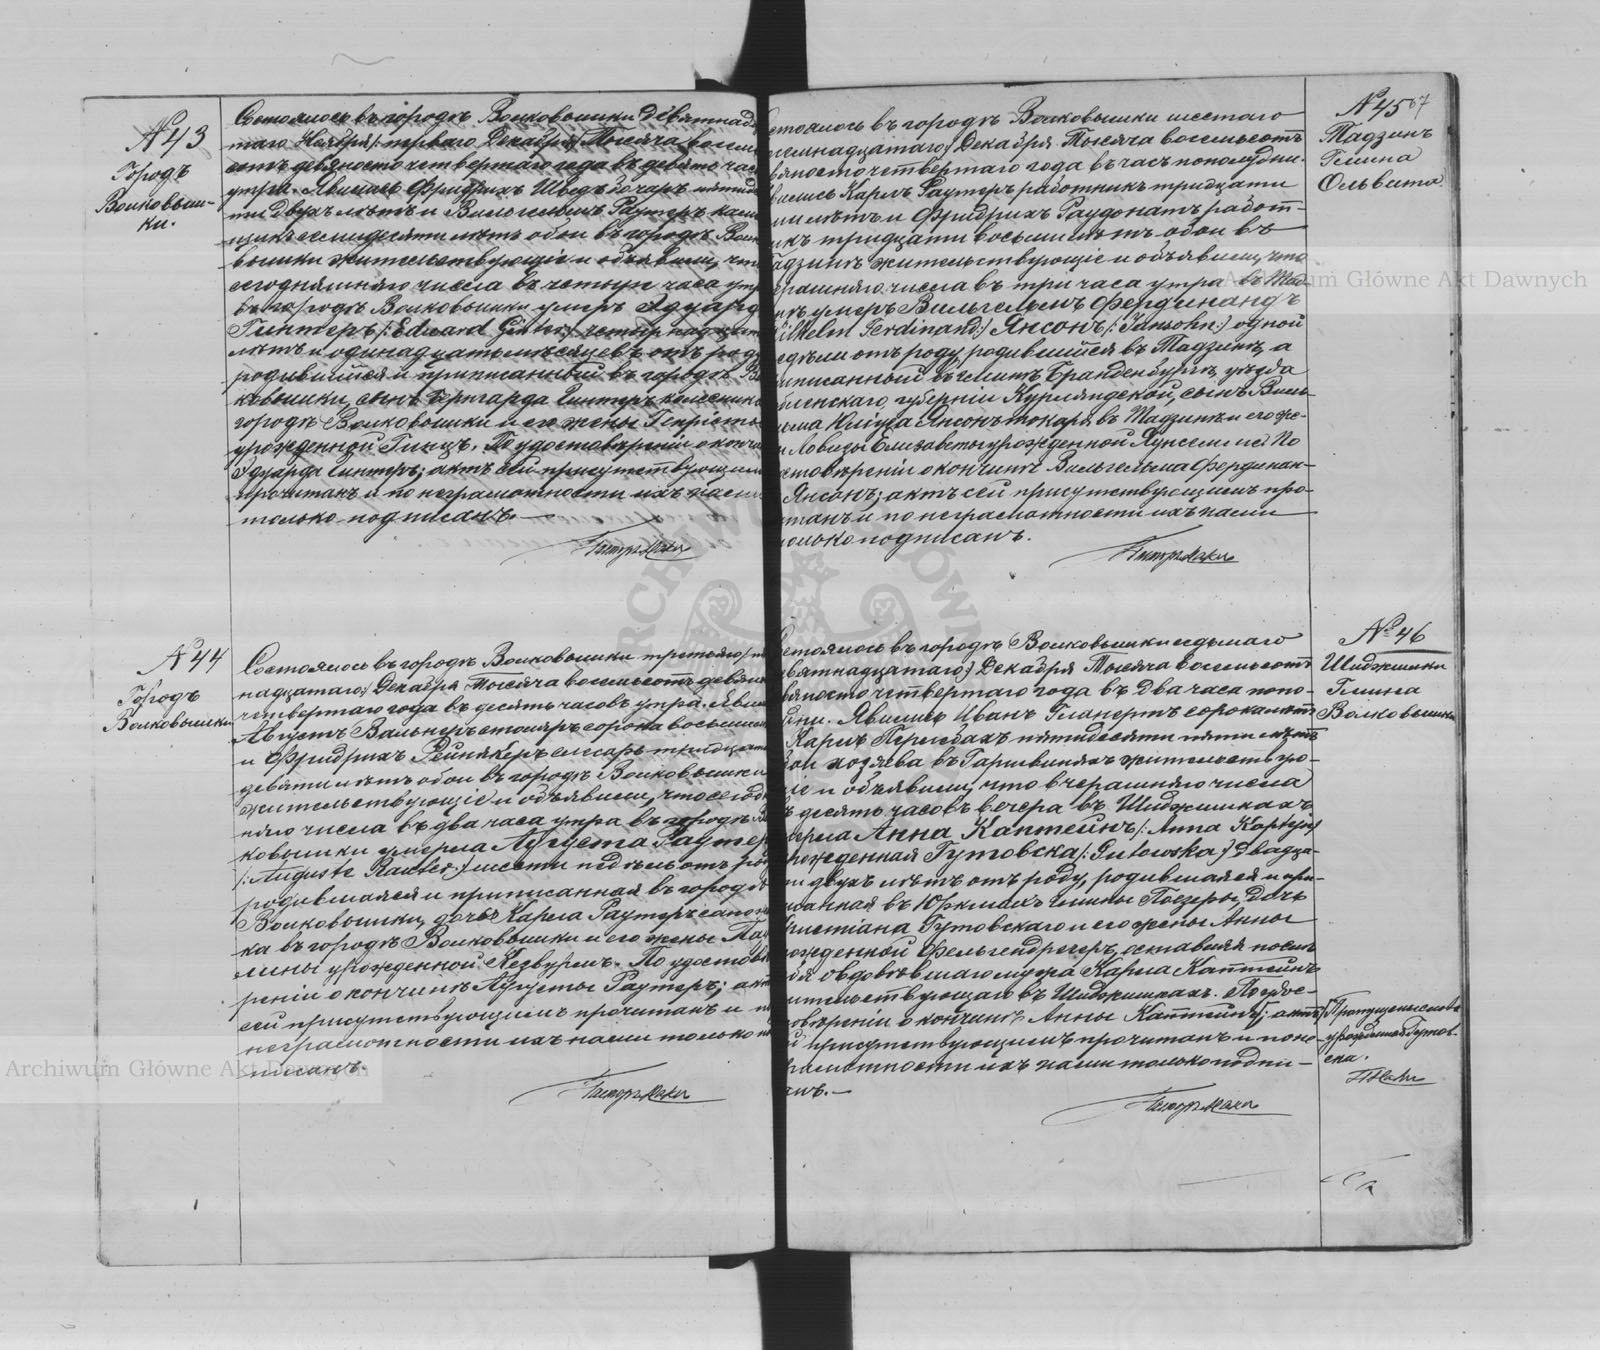 № 43
Городъ
Волковыш-
ки.
Состоялось въ городѣ Волковышки девятнад
таго Ноября /: перваго Декабря :/ Тысяча восемь
сотъ девяносто четвертаго года въ девять час
утра. Явились Фридрихъ Шведъ бочаръ
ти двухъ лѣтъ и Вильгельмъ Раутеръ
семидесяти лѣтъ обои въ городѣ Волк
вышки жительствующіе и объявили, что
сегодняшняго числа въ четыре часа утра
въ городѣ Волковышки умеръ Эдуардъ
Гинтеръ /: Eduard Ginter :/ четырнадцати
лѣтъ и одинадцать мѣсяцевъ отъ роду
родившійся и приписанный въ городѣ Во
ковышки, сынъ Бернгарда Гинтеръ
городѣ Волковышки и его жены Генріеты
урожденной Гинцъ. По удостовѣреніи о кончинѣ
Эдуарда Гинтеръ; актъ сей присутствующимъ
прочитанъ и по неграмотности ихъ нами
только подписанъ.
Пасторъ
№ 44
Городъ
Волковышки
Состоялось въ городѣ Волковышки третьяго /: пят
надцатаго :/ Декабря Тысяча восемьсотъ девяно
четвертаго года въ десять часовъ утра. Явил
Августъ Вальнеръ столяръ сорока восьми лѣтъ
и Фридрихъ слесарь тридцати
девяти лѣтъ обои въ городѣ Волковышки
жительствующіе и объявили, что сегод
няго числа въ два часа утра въ городѣ Во
ковышки умерла Августа Раутеръ
/: Auguste Rauter :/ шести недѣль отъ роду
родившаяся и приписанная въ городѣ
Волковышки, дочь Карла Раутеръ сапож
ка въ городѣ Волковышки и его жены Па
лины урожденной По удостовѣ
реніи о кончинѣ Августы Раутеръ; актъ
сей присутствующимъ прочитанъ и по
неграмотности ихъ нами только под
писанъ.
Пасторъ
№ 45 67
Тадзинъ
Гмина
Ольвита
стоялось въ городѣ Волковышки шестаго
семнадцатаго :/ Декабря Тысяча восемьсотъ
вяносто четвертаго года въ часъ пополудни.
вились Карлъ Раутеръ работникъ тридцати
ми лѣтъ и Фридрихъ Раудонатъ работ-
икъ тридцати восьми лѣтъ обои въ
адзинѣ жительствующіе и объявили, что
ерашняго числа въ три часа утра въ Тад-
нѣ умеръ Вильгельмъ Фердинандъ
Wilhelm Ferdinand :/ Янсонъ /: Jansohn :/ одной
едѣли отъ роду, родившійся въ Тадзинѣ, а
иписанный въ гминѣ Бранденбургъ, уѣзда
губерніи Курляндской, сынъ Виль
Янсонъ токаря въ Тадзинѣ и его же-
ы Ловизы Елизаветы урожденной По
стовѣреніи о кончинѣ Вильгельма Фердинан-
Янсонъ; актъ сей присутствующимъ про-
танъ и по неграмотности ихъ нами
олько подписанъ.
Пасторъ
№ 46
Шидкишки
Гмина
Волковышки
стоялось въ городѣ Волковышки седьмаго
вятнадцатаго :/ Декабря Тысяча восемьсотъ
вяносто четвертаго года въ два часа попо-
дни. Явились Иванъ Гланертъ сорока лѣтъ
Карлъ пятидесяти пяти лѣтъ
бои хозяева въ жительству-
іе и объявили, что вчерашняго числа
въ десять часовъ вечера въ Шидкишкахъ
мерла Анна Каптейнъ /: Anna Kaptejn
рожденная Гутовска /: Gutowska :/ двадца-
ти двухъ лѣтъ отъ роду, родившаяся и при-
санная въ гмины Поезеры, дочь
Христіана Гутовскаго и его жены Анны
ожденной оставивъ послѣ
бя овдовѣвшаго мужа Карла Каптейнъ
ительствующаго въ Шидкишкахъ. По удос-
овѣреніи о кончинѣ Анны Каптейнъ; актъ
й присутствующимъ прочитанъ и по не-
рамотности ихъ нами только подпи-
анъ.
Пасторъ
Пропущены слова
урожденная Гутов-
ска.
Archiwum Główne Akt Dawnych
Archiwum Główne Akt Dawnych